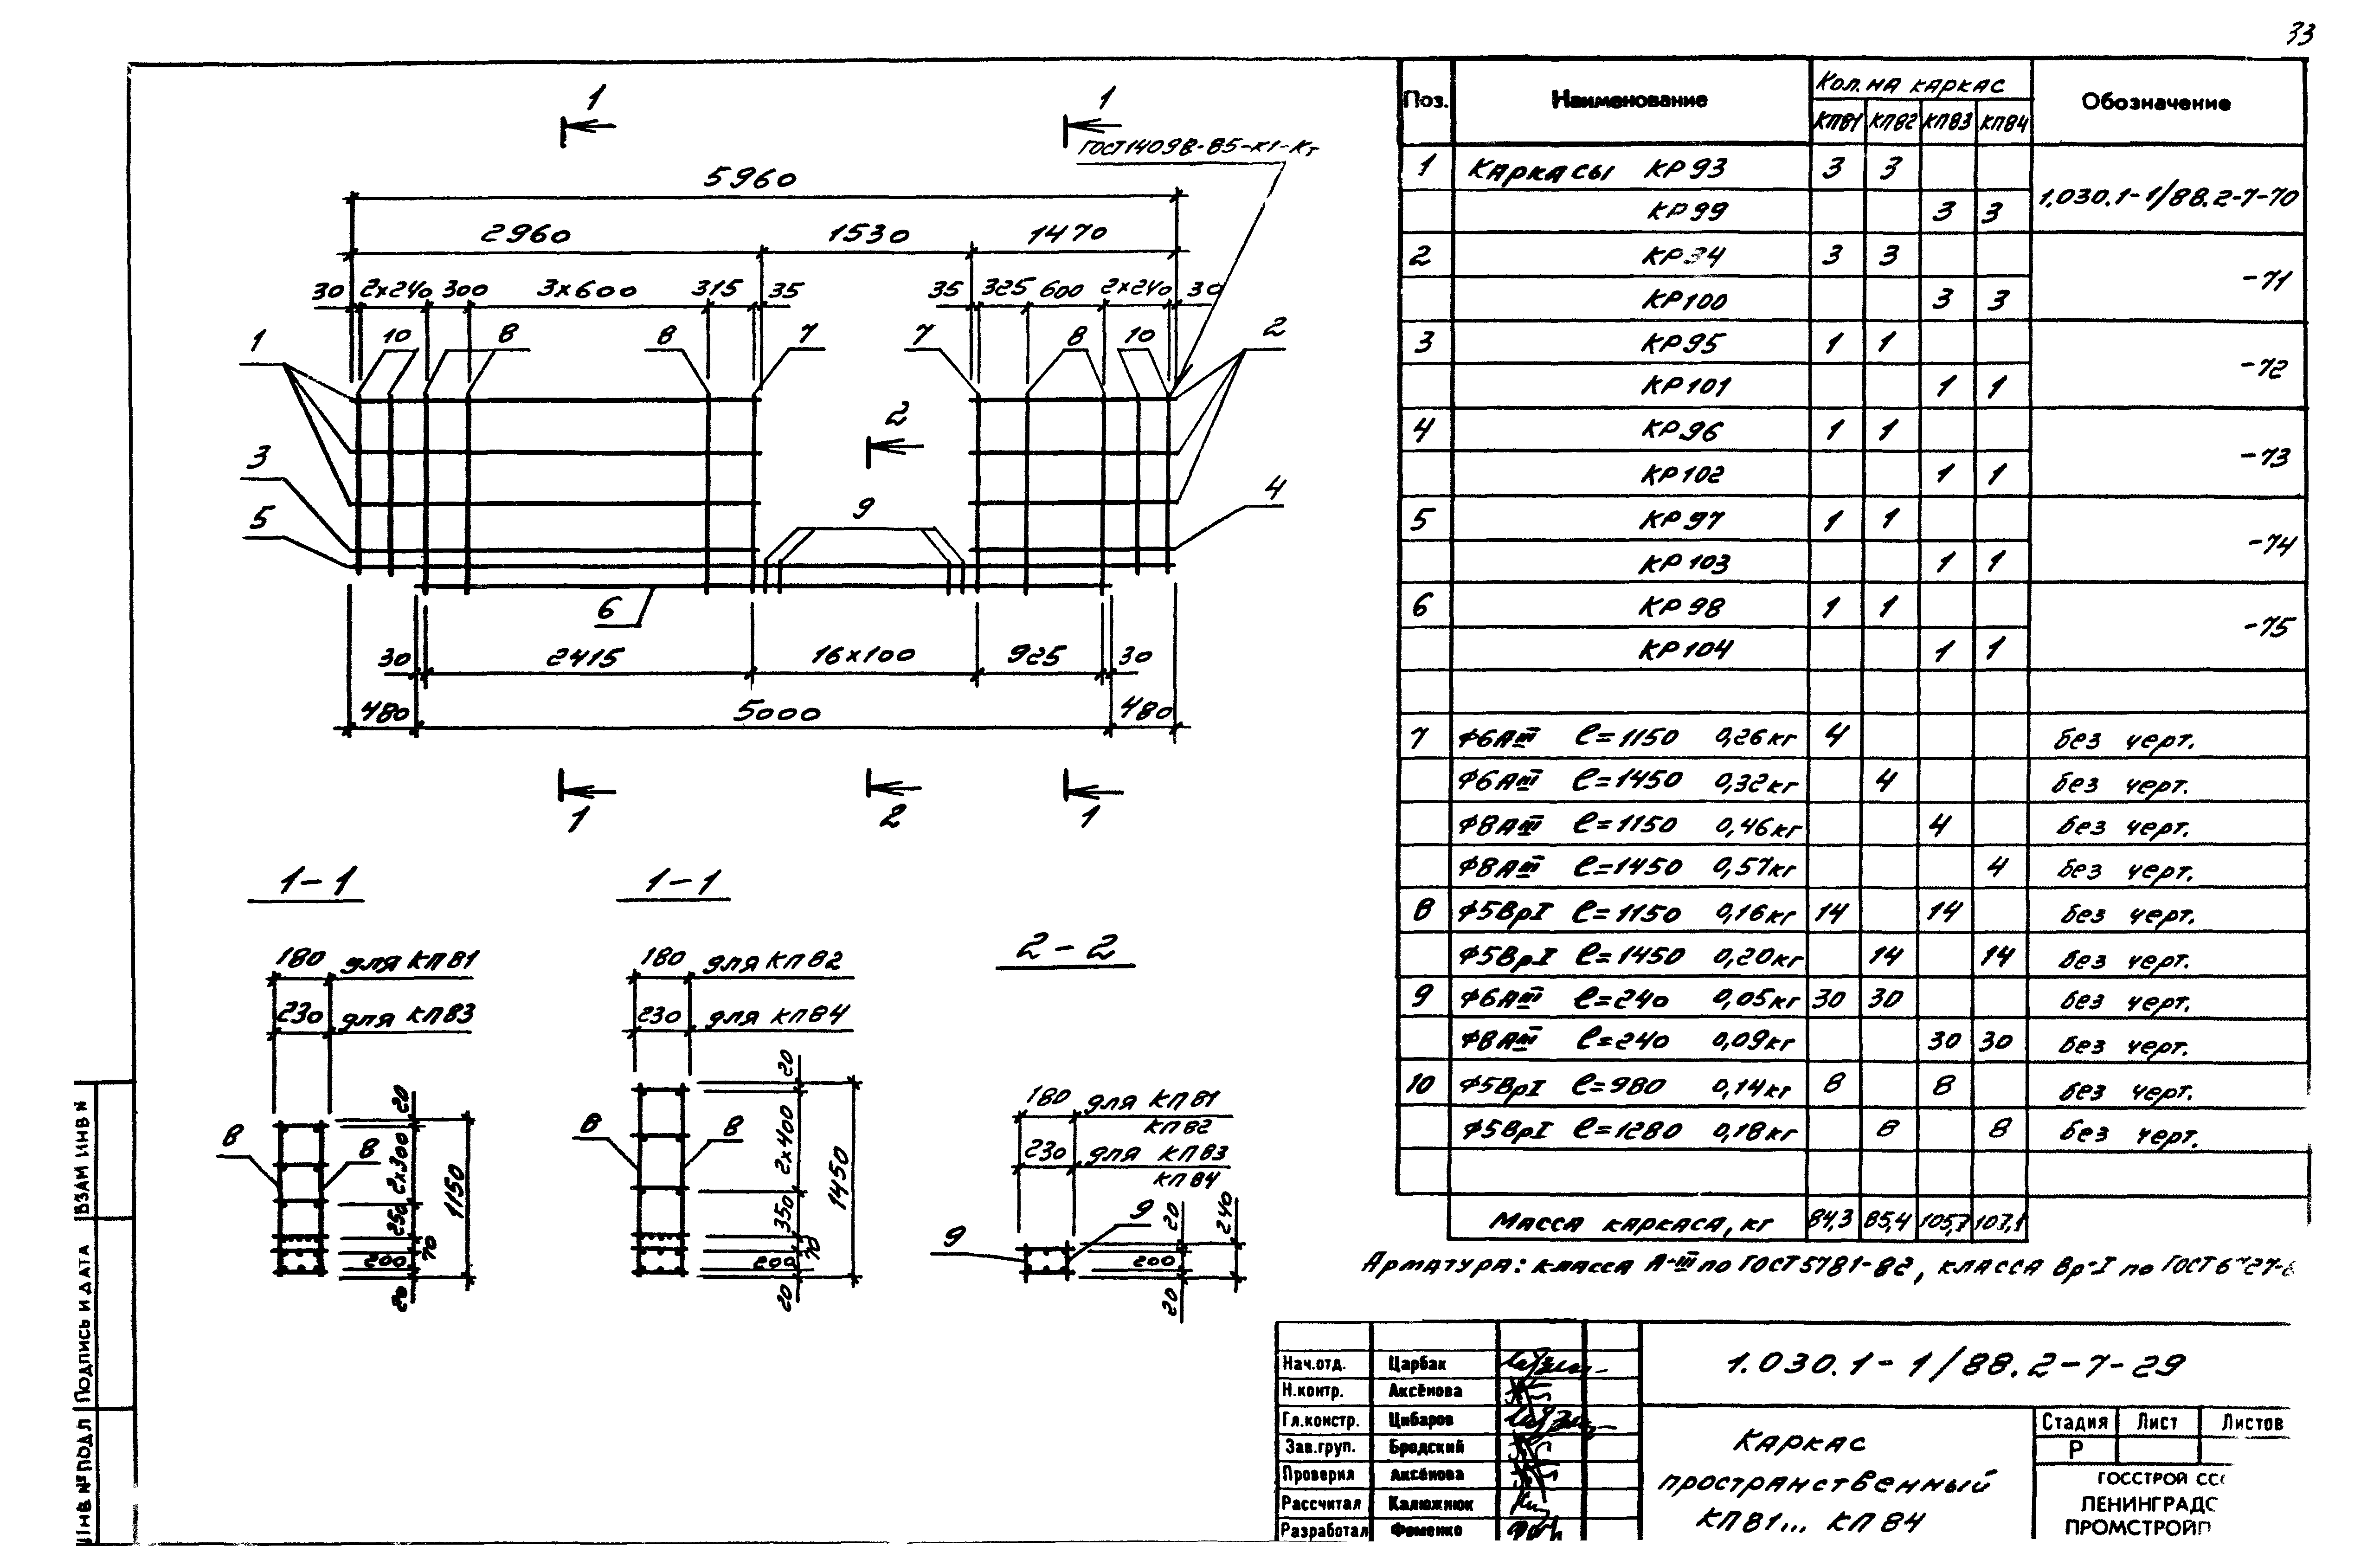 33
1 1
ГОСТ14098-85-К1-Кт
5960
2960 1530 1470
30 2×240 300 3×600 315 35 35 325 600 2×240 30
1 10 8 8 7 7 8 10 2
2
3 9 4
5
6
30 2415 16×100 925 30
480 5000 480
1 2 1
1-1
180 для КП81
230 для КП83
8 8
20 2×300 250 70 200 20 1150
1-1
180 для КП82
230 для КП84
8 8
20 2×400 350 70 200 20 1450
2-2
180 для КП81
КП82
230 для КП83
КП84
9 9
20 200 20 240
Поз. Наименование Кол. на каркас Обозначение
КП81 КП82 КП83 КП84
1 Каркасы КР93 3 3 1.030.1-1/88.2-7-70
КР99 3 3
2 КР94 3 3 -71
КР100 3 3
3 КР95 1 1 -72
КР101 1 1
4 КР96 1 1 -73
КР102 1 1
5 КР97 1 1 -74
КР103 1 1
6 КР98 1 1 -75
КР104 1 1
7 Ф6АIII ℓ=1150 0,26кг 4 без черт.
Ф6АIII ℓ=1450 0,32кг 4 без черт.
Ф8АIII ℓ=1150 0,46кг 4 без черт.
Ф8АIII ℓ=1450 0,57кг 4 без черт.
8 Ф5ВрI ℓ=1150 0,16кг 14 14 без черт.
Ф5ВрI ℓ=1450 0,20кг 14 14 без черт.
9 Ф6АIII ℓ=240 0,05кг 30 30 без черт.
Ф8АIII ℓ=240 0,09кг 30 30 без черт.
10 Ф5ВрI ℓ=980 0,14кг 8 8 без черт.
Ф5ВрI ℓ=1280 0,18кг 8 8 без черт.
Масса каркаса, кг 84,3 85,4 105,7 107,1
Арматура: класса А-III по ГОСТ 5781-82, класса Вр-I по ГОСТ
Нач.отд. Царбак
Н.контр. Аксёнова
Гл.констр. Цибаров
Зав.груп. Бродский
Проверил Аксёнова
Рассчитал Калюжнюк
Разработал Фоменко
1.030.1-1/88.2-7-29
Каркас
пространственный
КП81... КП84
Стадия Лист Листов
Р
ГОССТРОЙ ССС
ЛЕНИНГРАДС
ПРОМСТРОЙП
ВЗАМ ИНВ N
Подпись и дата
Инв № подл